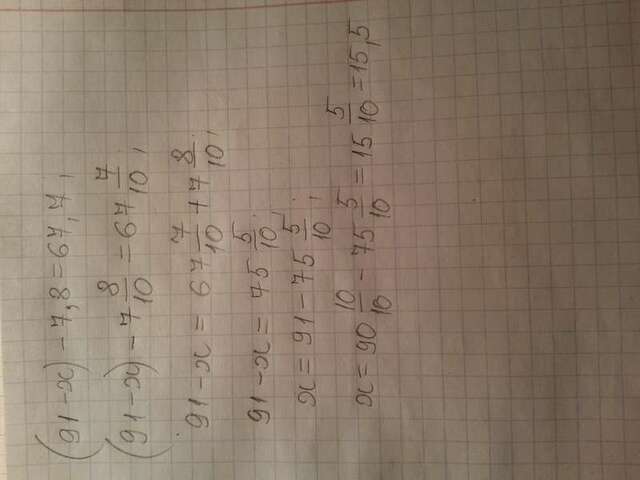 (91-x)-7,8=67,7;
(91-x)-7 8/10=67 7/10;
91-x=67 7/10+7 8/10;
91-x=75 5/10;
x=91-75 5/10;
x=90 10/10-75 5/10=15 5/10=15,5